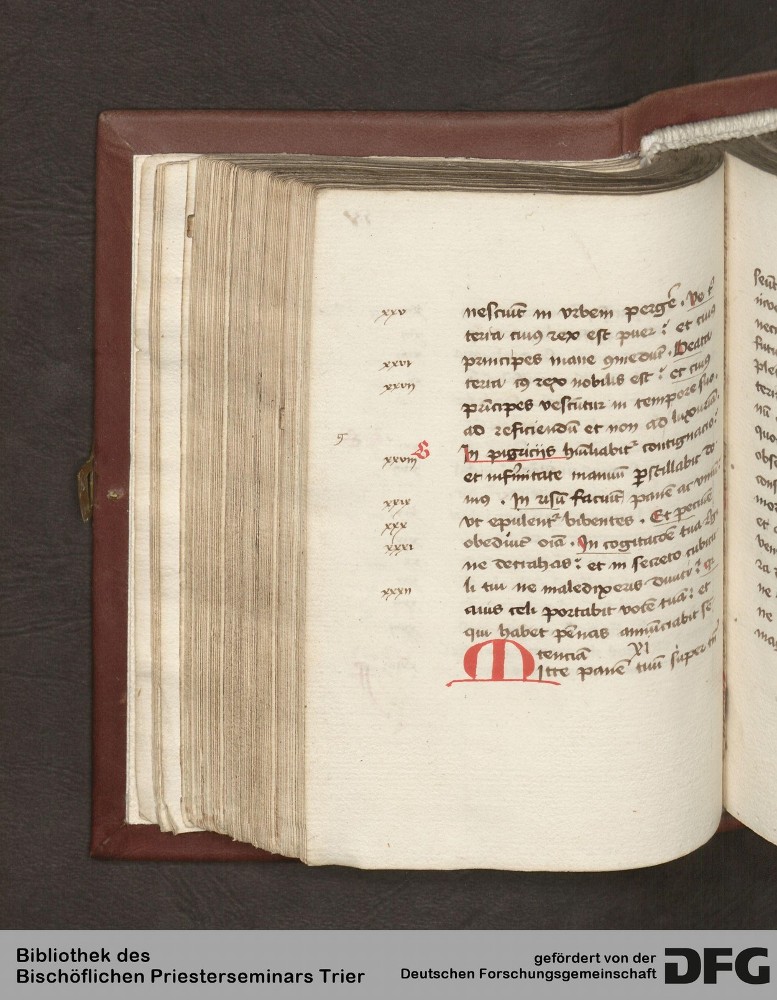 xxv nesciūt in vrbem pergē . Ve t
terra cuiꝰ rex est puer : et cuiꝰ
xxvi principes mane ꝯmedūt . Beata
xxvii terra cꝰ rex nobilis est : et cuiꝰ
prīcipes vescūtur in tempore suo .
ad reficiendū et non ad luxoriā .
xxviii In pigriciis hūiliabitʳ contignacio :
et infirmitate manuū ꝑstillabit do
xxix mꝰ . In risū faciūt panē ac vinū
xxx vt epulentʳ bibentes . Et pecunie
xxxi obediūt oīa . In cogitacōe tua regi
ne detrahas : et in secreto cubicu
xxxii li tui ne maledixeris diuiti : q
auis celi portabit vocē tuā : et
qui habet pēnas annūciabit sē
tenciā XI
Mitte panē tuū super trā
Bibliothek des
Bischöflichen Priesterseminars Trier
gefördert von der
Deutschen Forschungsgemeinschaft
DFG